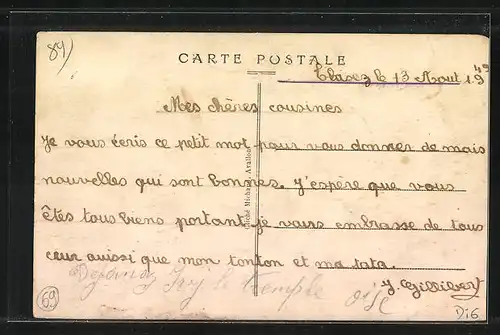 89)
CARTE POSTALE
le 13 Août 19
Mes chères cousines
Je vous écris ce petit mot pour vous donner de mais
nouvelles qui sont bonnes. J'espère que vous
êtes tous biens portant je vous embrasse de tous
cœur aussi que mon tonton et ma tata.
le Temple
J. Gillibert
69
Oise
D16
Cliché Michaud, Avallon